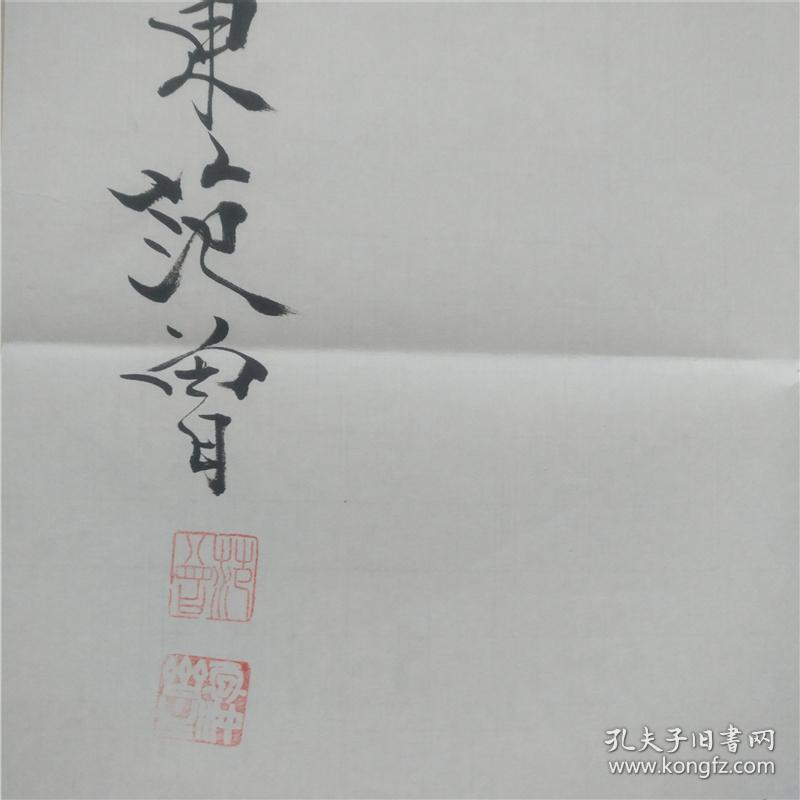 東范曾
范曾
孔夫子旧书网
www.kongfz.com